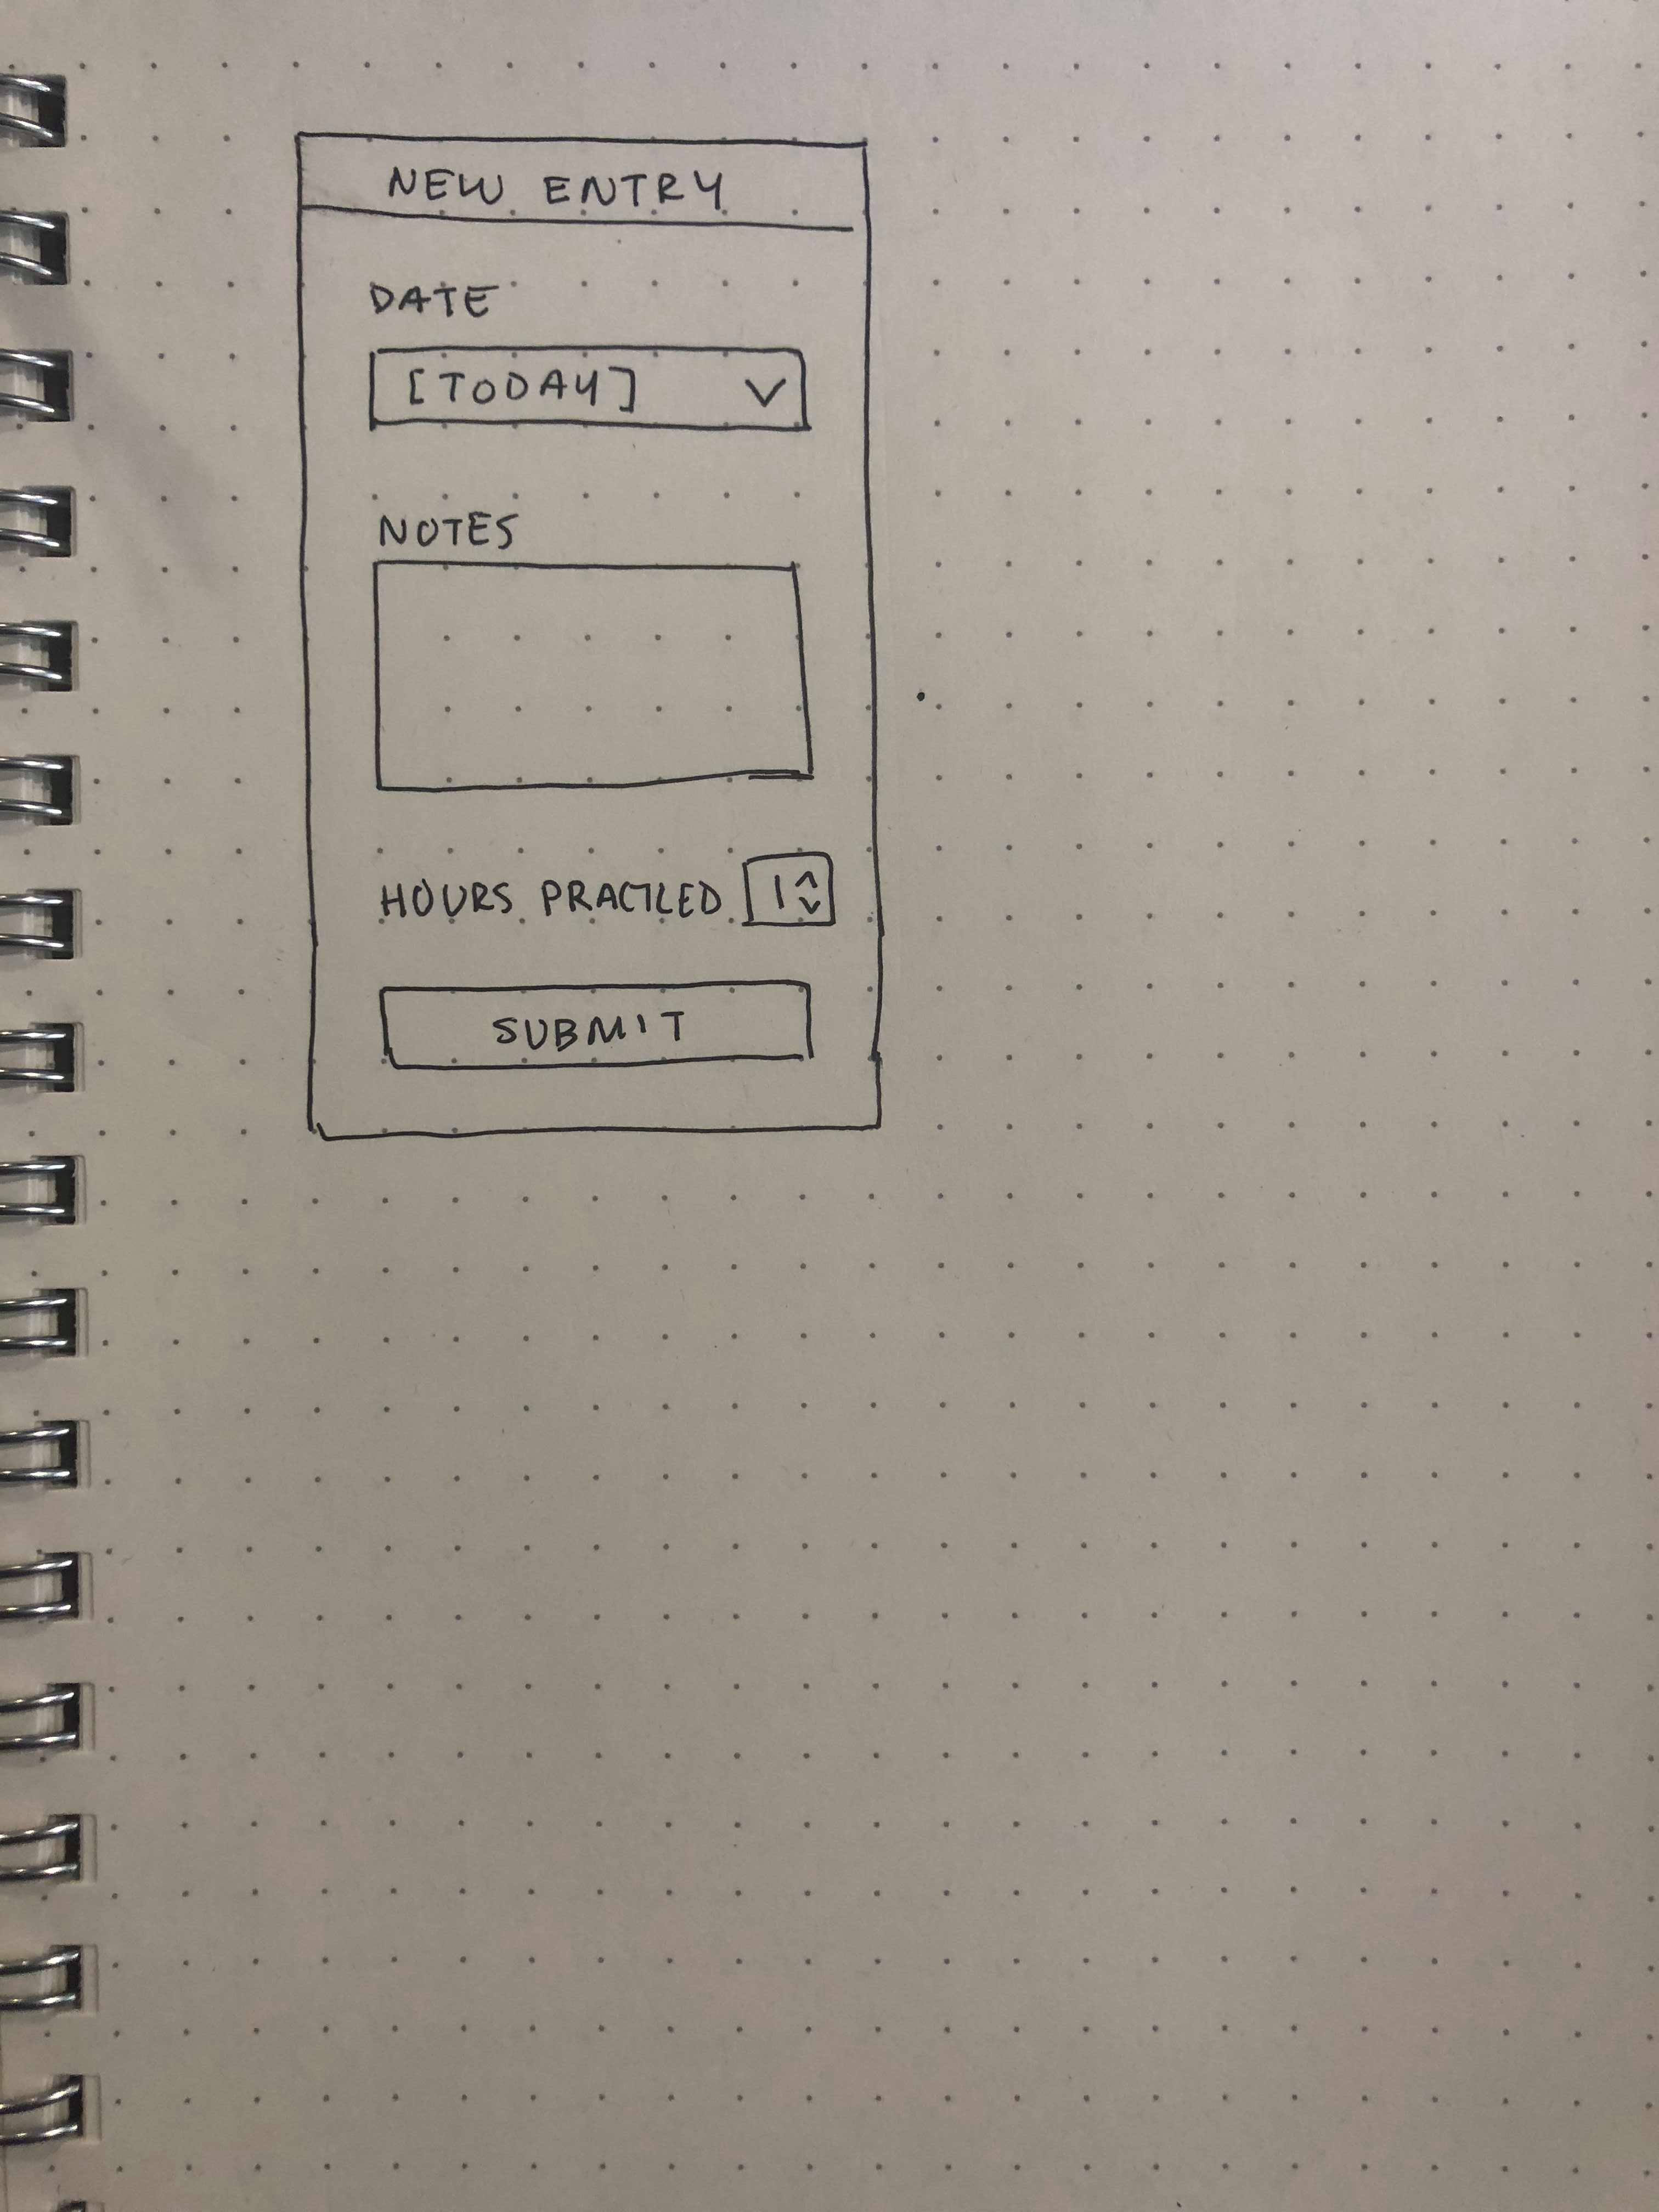 NEW ENTRY
DATE
[TODAY]
NOTES
HOURS PRACTICED 1
SUBMIT